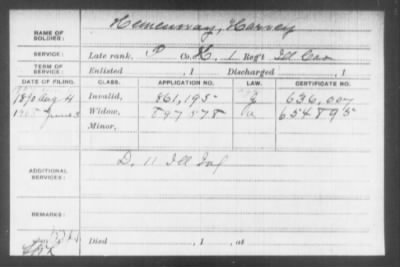 NAME OF SOLDIER: Hemenway, Harvey
SERVICE: Late rank, P Co. H, 1 Reg't Ill Cav
TERM OF SERVICE: Enlisted , 1 Discharged , 1
DATE OF FILING. CLASS. APPLICATION NO. LAW. CERTIFICATE NO.
1890 Aug 4 Invalid, 861,195 636,007
June Widow, 847578 654895
Minor,
ADDITIONAL SERVICES: D. 11 Ill Inf
REMARKS:
Died , 1 , at